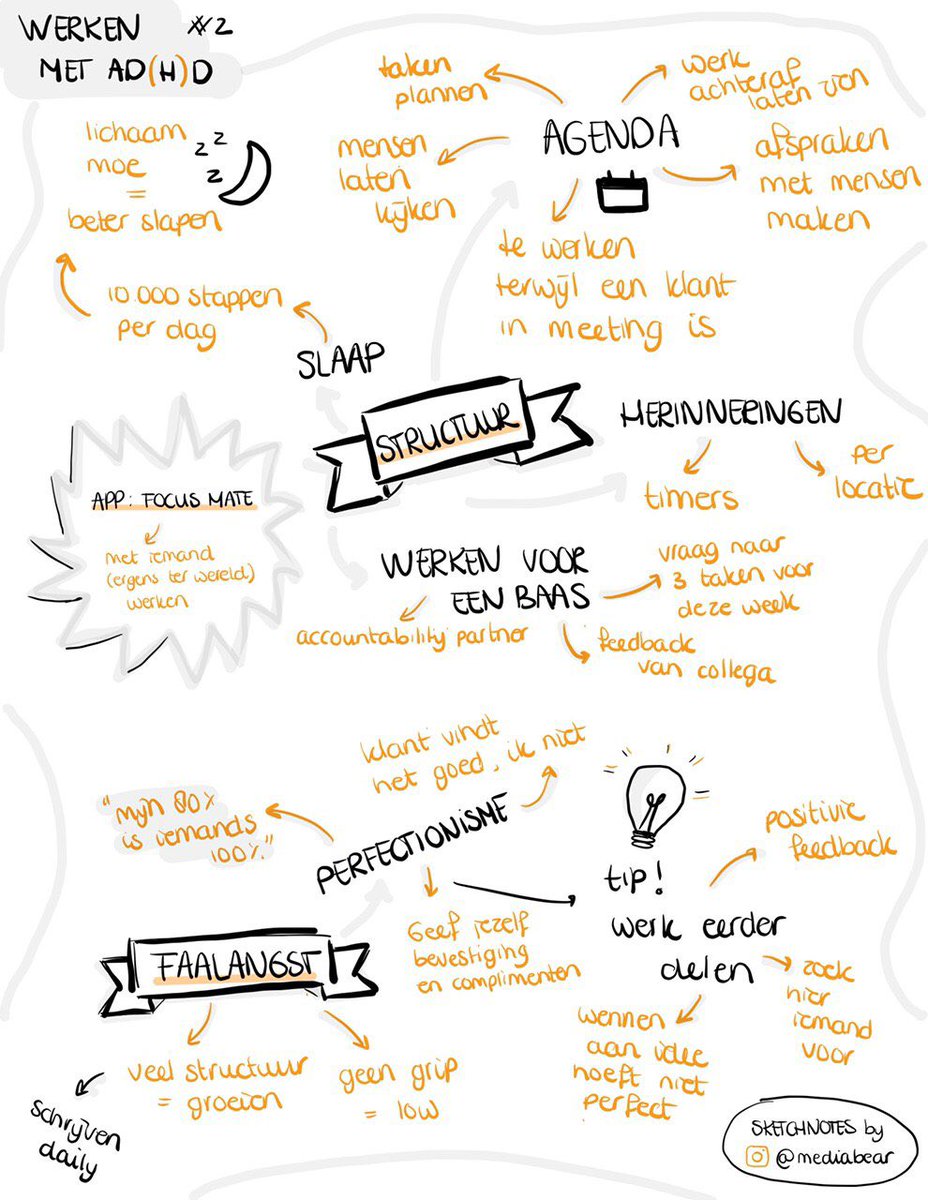 WERKEN #2
MET AD(H)D
taken
plannen
werk
achteraf
laten zien
AGENDA
mensen
laten
kijken
afspraken
met mensen
maken
te werken
terwijl een klant
in meeting is
lichaam
moe
=
beter slapen
z z
z
10.000 stappen
per dag
SLAAP
STRUCTUUR
HERINNERINGEN
timers
per
locatie
APP: FOCUS MATE
met iemand
(ergens ter wereld)
werken
WERKEN VOOR
EEN BAAS
vraag naar
3 taken voor
deze week
accountability partner
feedback
van collega
klant vindt
het goed, ik niet
"mijn 80%
is iemands
100%."
PERFECTIONISME
Geef jezelf
bevestiging
en complimenten
tip!
werk eerder
delen
positivie
feedback
zoek
hier
iemand
voor
wennen
aan idee
hoeft niet
perfect
FAALANGST
veel structuur
= groeien
geen grip
= low
schrijven
daily
SKETCHNOTES by
@mediabear